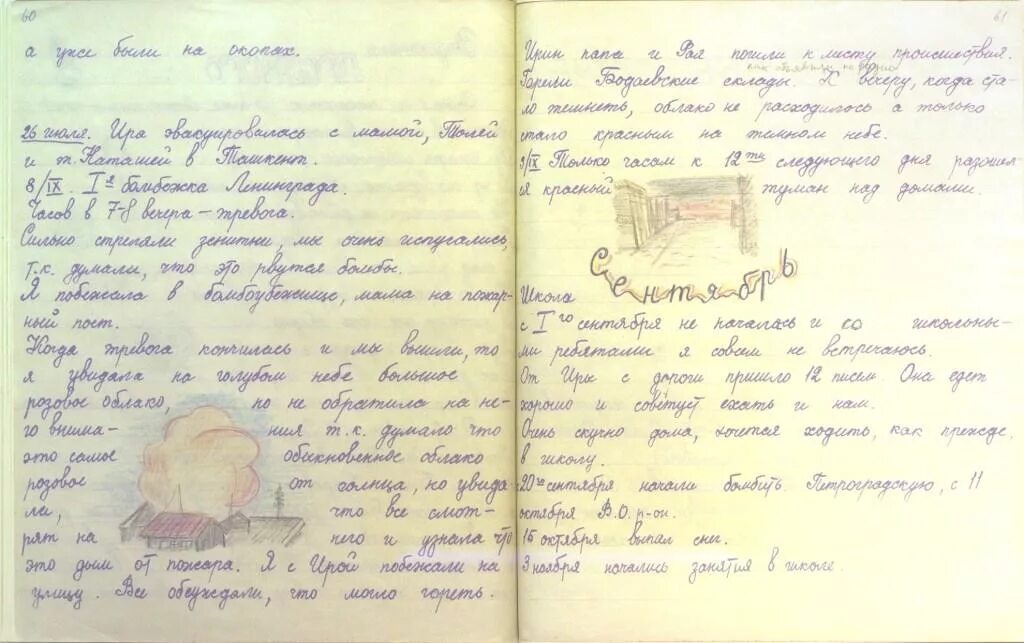 60
а уже были на окопах.
26 июля. Ира эвакуировалась с мамой, Толей
и т. Наташей в Ташкент.
8/IX. Iя бомбежка Ленинграда.
Часов в 7-8 вечера – тревога.
Сильно стреляли зенитки, мы очень испугались,
т.к. думали, что это рвутся бомбы.
Я побежала в бомбоубежище, мама на пожар-
ный пост.
Когда тревога кончилась и мы вышли, то
я увидала на голубом небе большое
розовое облако, но не обратила на не-
го внима- ния т.к. думала что
это самое обыкновенное облако
розовое от солнца, но увида-
ли, что все смот-
рят на него и узнала что
это дым от пожара. Я с Ирой побежали на
улицу. Все обсуждали, что могло гореть.
61
Ирин папа и Рая пошли к месту происшествия.
как объявили по радио
Горели Бодаевские склады. К вечеру, когда ста-
ло темнеть, облако не расходилось а только
стало красным на темном небе.
9/IX Только часам к 12ти следующего дня разошел-
ся красный туман над домами.
Сентябрь
Школа
с I го сентября не началась и со школьны-
ми ребятами я совсем не встречаюсь.
От Иры с дороги пришло 12 писем. Она едет
хорошо и советует ехать и нам.
Очень скучно дома, хочется ходить, как прежде,
в школу.
20го сентября начали бомбить Петроградскую, с 11
октября В.О. р-он.
15 октября выпал снег.
3 ноября начались занятия в школе.